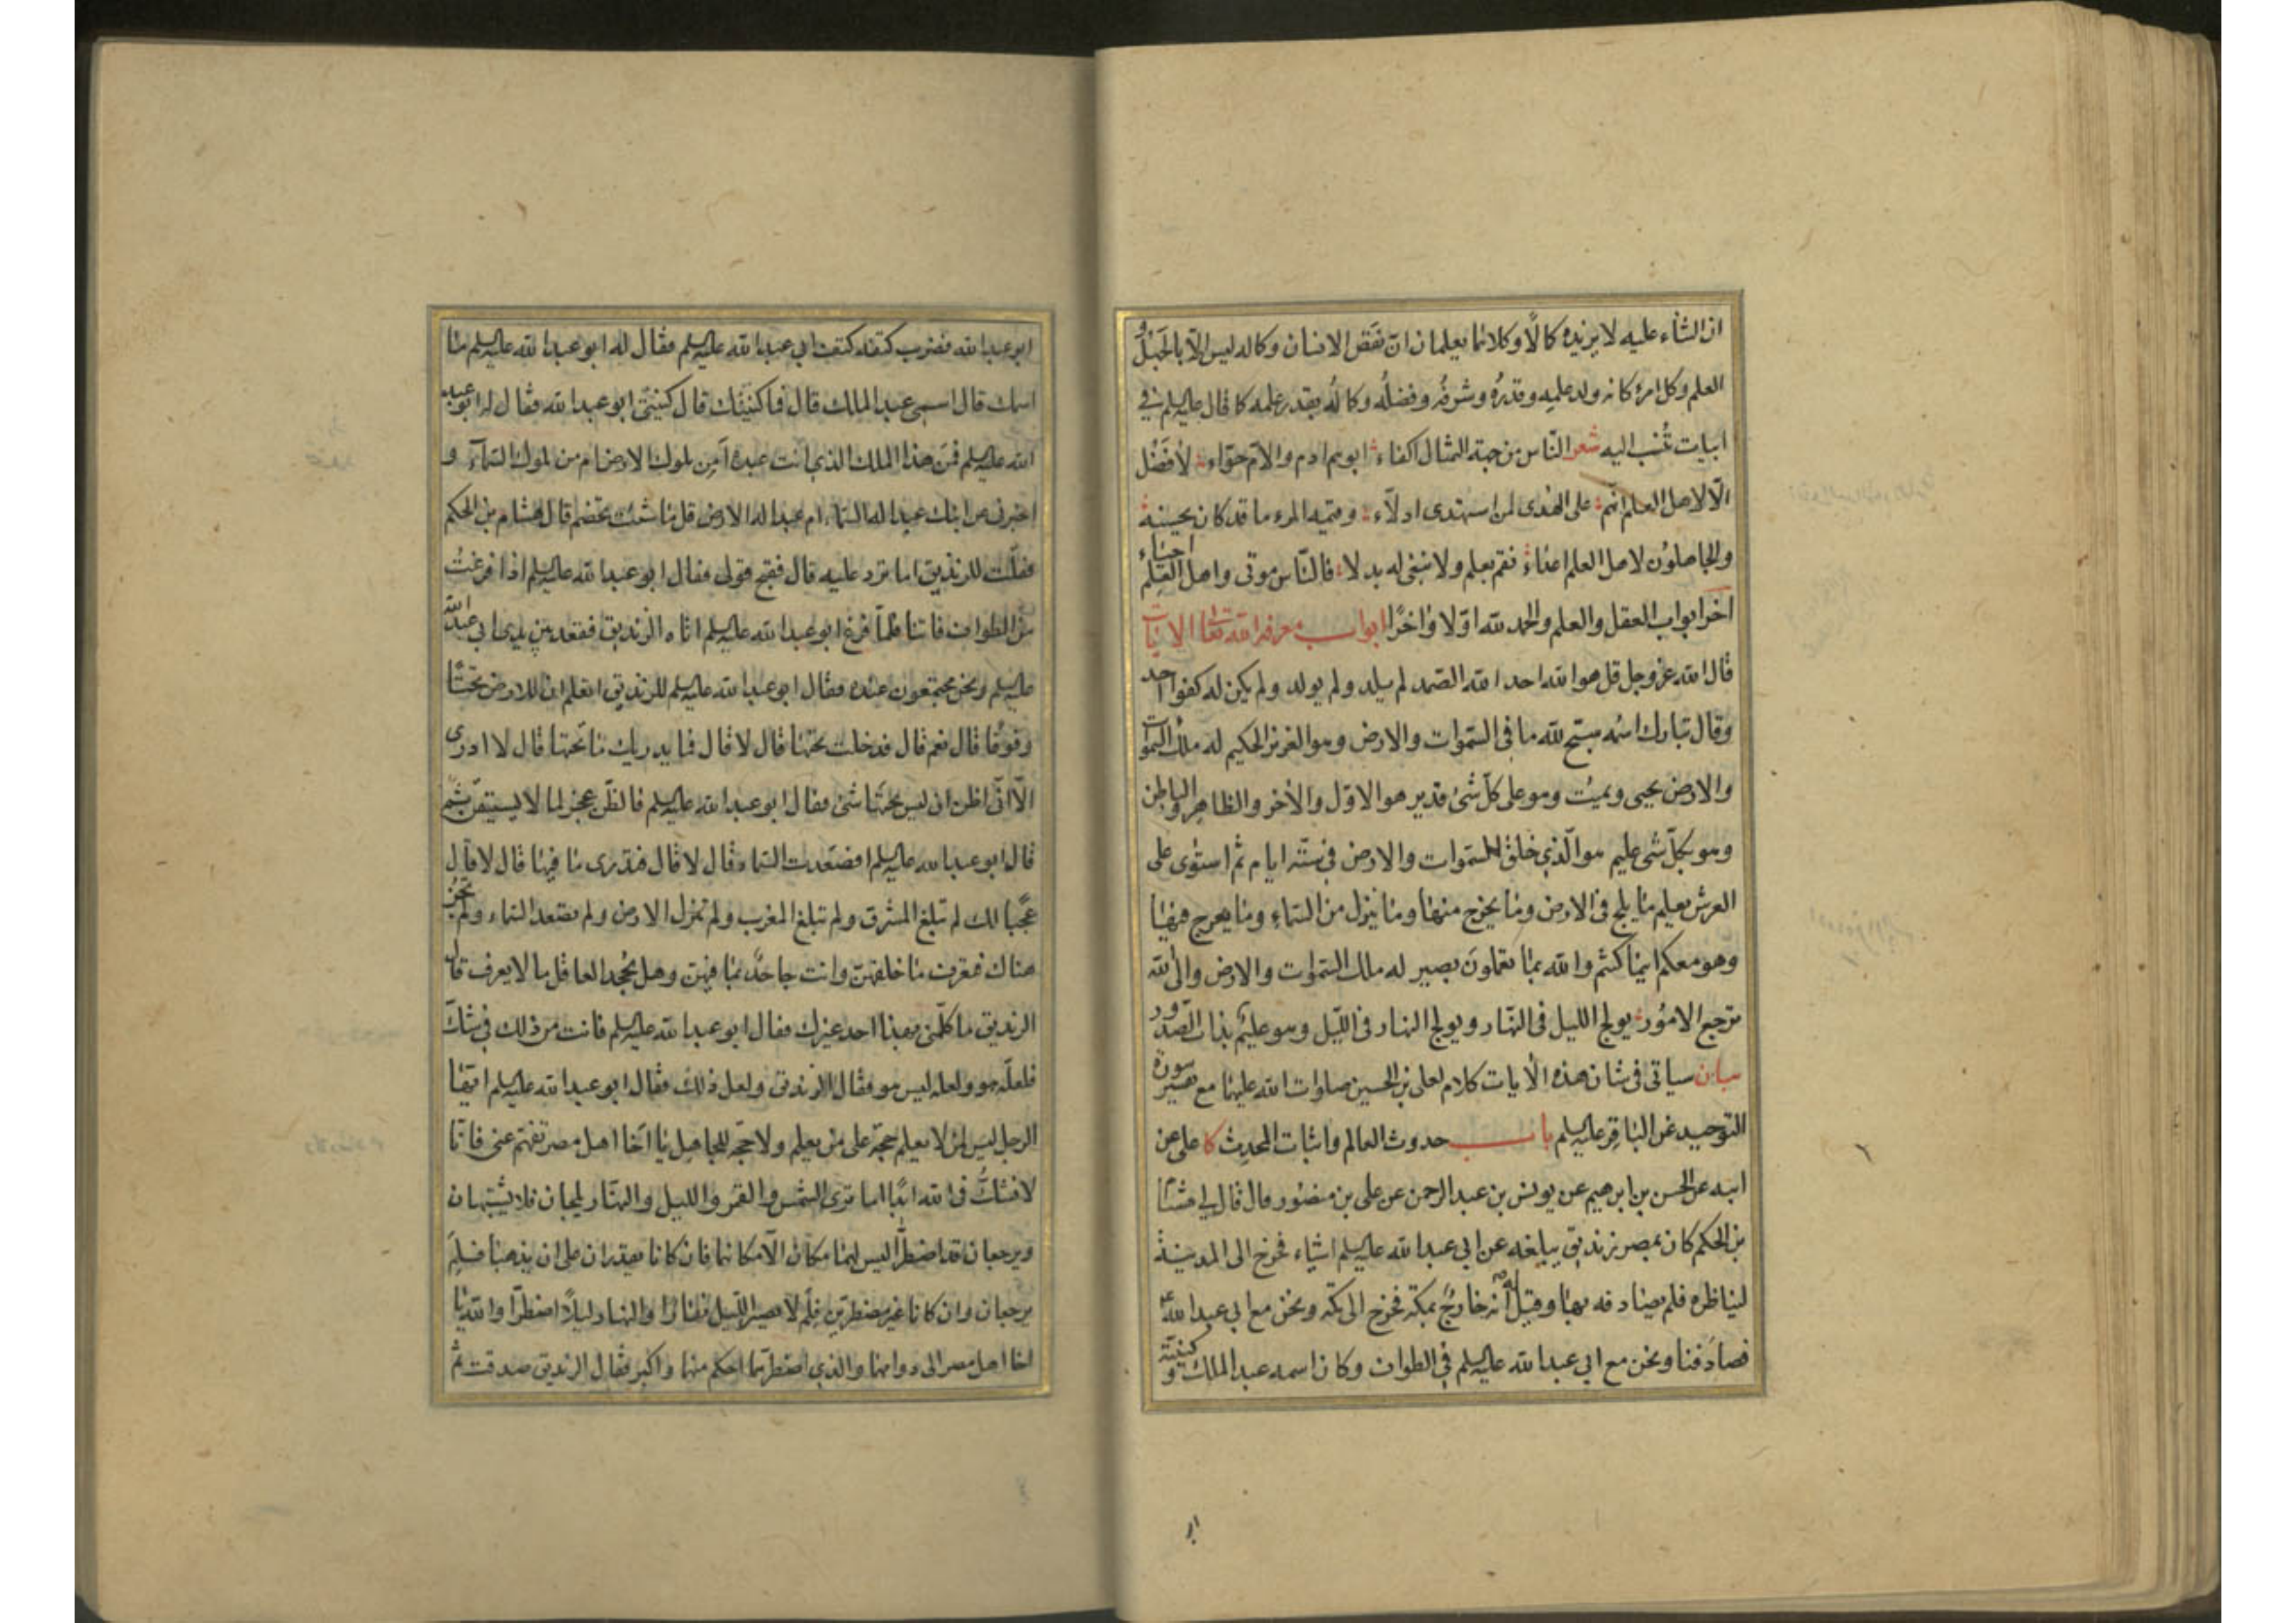 ان الثناء عليه لا يزيده كمالًا وكلاهما يعلمان ان نقص الانسان وكماله ليس الّا بالجهل و
العلم وكل امرئ كانه ولد علمه وقدره وشرفه وفضله وكماله بقدر علمه كما قال عليه السلم في
ابيات نُسب اليه شعر الناس من جهة التمثال اكفاء ابوهم ادم والام حوّاء لا فضل
الّا لاهل العلم انهم على الهدى لمن استهدى ادلّاء وقيمة المرء ما قد كان يحسنه
والجاهلون لاهل العلم اعداء فقم بعلم ولا تبغى له بدلا فالناس موتى واهل العلم احياء
اخر ابواب العقل والعلم والحمد لله اوّلا واخرًا ابواب معرفة الله تعا الايات
قال الله عز وجل قل هو الله احد الله الصمد لم يلد ولم يولد ولم يكن له كفوا احد
وقال تبارك اسمه سبّح لله ما فى السّموات والارض وهو العزيز الحكيم له ملك السموات
والارض يحيى ويميت وهو على كلّ شئ قدير هو الاوّل والاخر والظاهر والباطن
وهو بكلّ شئ عليم هو الّذي خلق السّموات والارض في ستّة ايام ثم استوى على
العرش يعلم ما يلج فى الارض وما يخرج منها وما ينزل من السّماء وما يعرج فيها
وهو معكم اينما كنتم والله بما تعملون بصير له ملك السّموات والارض والى الله
ترجع الامُور يولج الليل فى النّهار ويولج النهار فى الليل وهو عليم بذات الصّدور
بيان سياتى فى شان هذه الايات كلام لعلى بن الحسين صلوات الله عليهما مع تفسير سورة
التوحيد عن الباقر عليه السلم باب حدوث العالم واثبات المحدث كا على عن
ابيه عن الحسن بن ابرهيم عن يونس بن عبد الرحمن عن على بن منصور قال قال لي هشام
بن الحكم كان بمصر زنديق يبلغه عن ابي عبد الله عليه السلم اشياء فخرج الى المدينة
ليناظره فلم يصادفه بها وقيل له انه خارج بمكة فخرج الى مكّه ونحن مع ابي عبد الله ع
فصادفنا ونحن مع ابي عبد الله عليه السلم في الطواف وكان اسمه عبد الملك وكنيته
ابر
ابو عبد الله فضرب كتفه كتف ابي عبد الله عليه السلم فقال له ابو عبد الله عليه السلم ما
اسمك قال اسمي عبد الملك قال فما كنيتك قال كنيتى ابو عبد الله فقال له ابو عبد
الله عليه السلم فمن هذا الملك الذي انت عبده امن ملوك الارض ام من ملوك السّماء و
اخبرنى عن ابنك عبد اله السماء ام عبد اله الارض قل ما شئت تخصم قال هشام بن الحكم
فقلت للزنديق اما ترد عليه قال فقبح قولى فقال ابو عبد الله عليه السلم اذا فرغت
من الطواف فاتنا فلمّا فرغ ابو عبد الله عليه السلم اتاه الزنديق فقعد بين يدى ابي عبد الله
عليه السلم ونحن مجتمعون عنده فقال ابو عبد الله عليه السلم للزنديق اتعلم ان للارض تحتًا
وفوقًا قال نعم قال فدخلت تحتها قال لا قال فما يدريك ما تحتها قال لا ادرى
الّا انّى اظن ان ليس تحتها شئ فقال ابو عبد الله عليه السلم فالظنّ عجز لما لا يستيقن ثم
قال ابو عبد الله عليه السلم افصعدت السّماء قال لا قال فتدرى ما فيها قال لا قال
عجبًا لك لم تبلغ المشرق ولم تبلغ المغرب ولم تنزل الارض ولم تصعد السماء ولم تجز
هناك فتعرف ما خلفهن وانت جاحد بما فيهن وهل يجحد العاقل ما لا يعرف قال
الزنديق ما كلّمنى بهذا احد غيرك فقال ابو عبد الله عليه السلم فانت من ذلك في شك
فلعلّه هو ولعله ليس هو فقال الزنديق ولعل ذلك فقال ابو عبد الله عليه السلم ايّها
الرجل ليس لمن لا يعلم حجّة على من يعلم ولا حجّة للجاهل يا اخا اهل مصر تفهم عنى فانّا
لا نشكّ فى الله ابدًا اما ترى الشمس والقمر والليل والنهار يلجان فلا يشتبهان
ويرجعان قد اضطرّا ليس لهما مكان الّا مكانهما فان كانا يقدران على ان يذهبا فلم
يرجعان وان كانا غير مضطرّين فلم لا يصير الليل نهارًا والنهار ليلًا اضطرّا والله يا
اخا اهل مصر الى دوامهما والذي اضطرّهما احكم منهما واكبر فقال الزنديق صدقت ثم